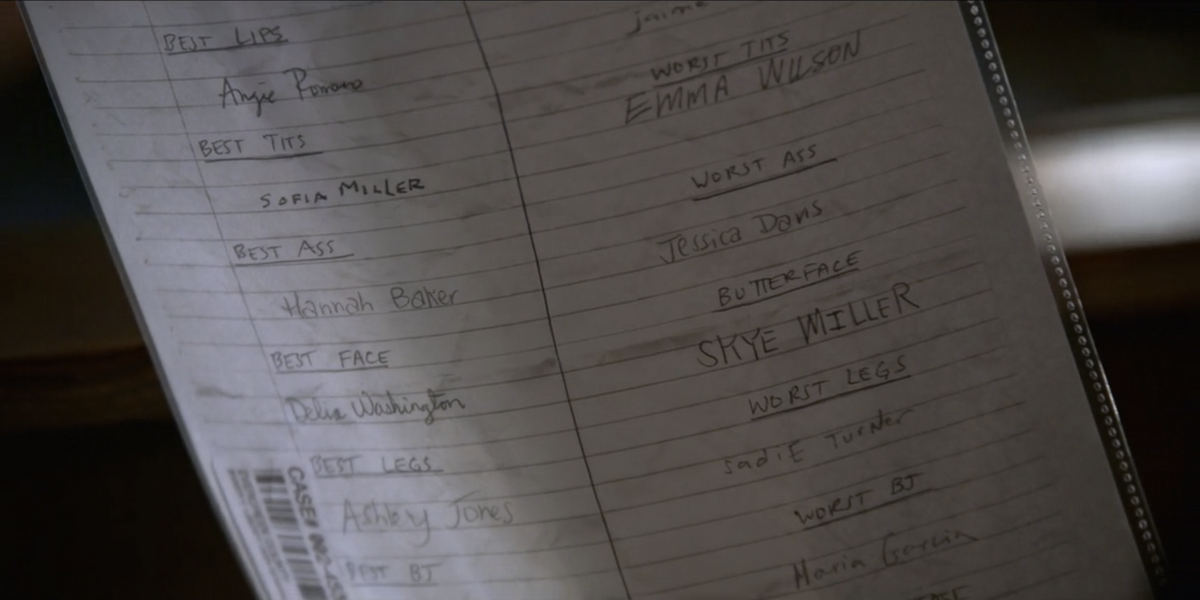 BEST LIPS
Angie Romano
BEST TITS
SOFIA MILLER
BEST ASS
Hannah Baker
BEST FACE
Delia Washington
BEST LEGS
Ashley Jones
BEST BJ
jaime
WORST TITS
EMMA WILSON
WORST ASS
Jessica Davis
BUTTERFACE
SKYE MILLER
WORST LEGS
sadiE Turner
WORST BJ
Maria Garcia
CASE#